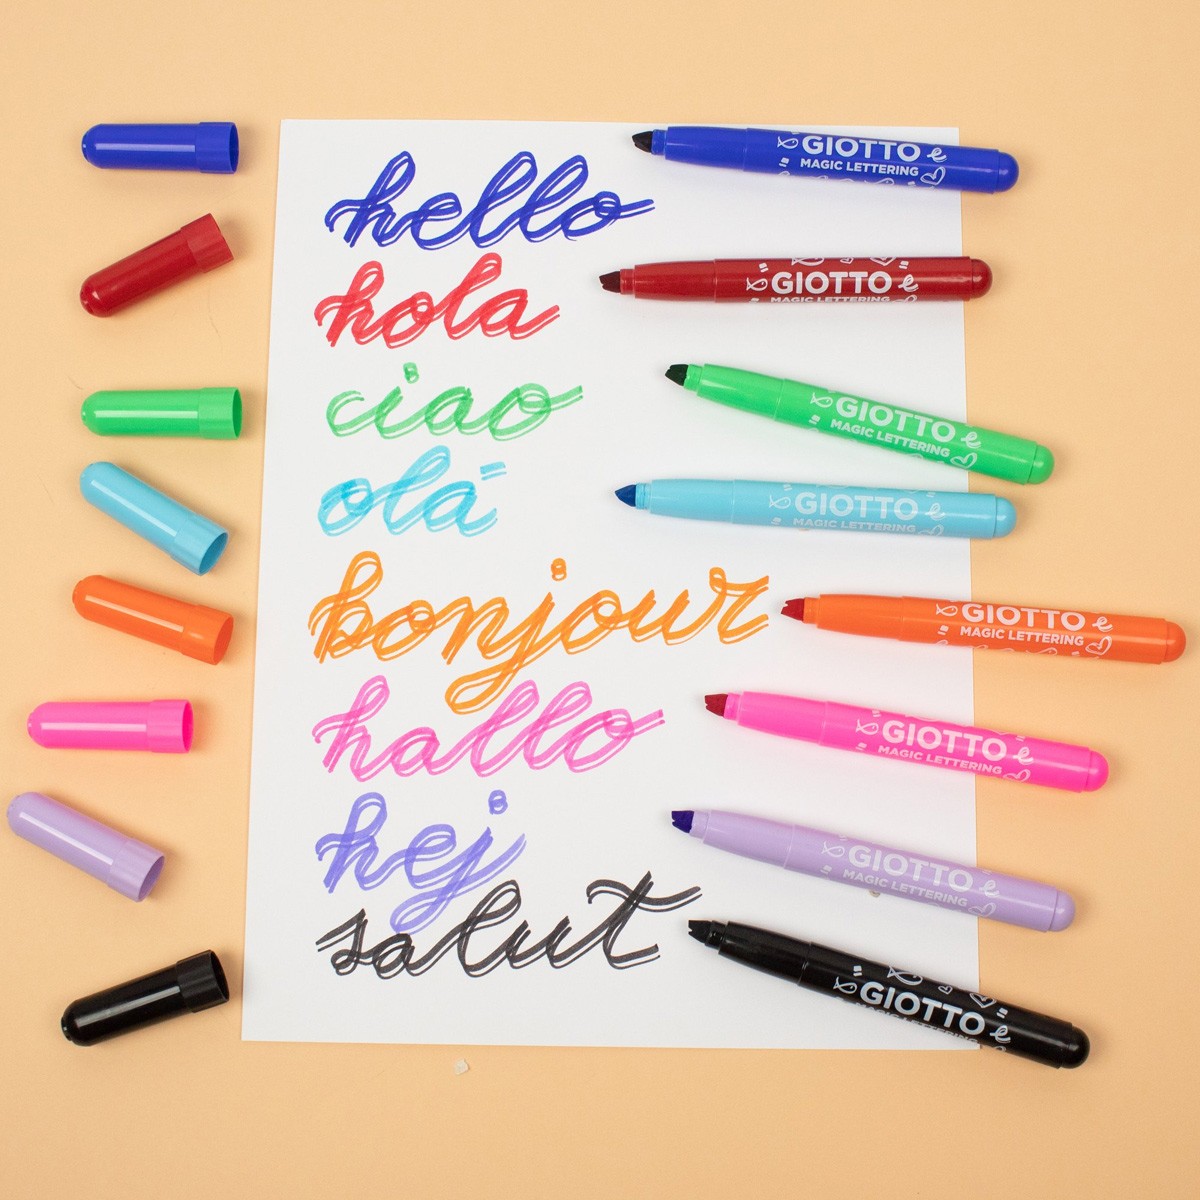 hello
GIOTTO
MAGIC LETTERING
hola
GIOTTO
MAGIC LETTERING
ciao
GIOTTO
MAGIC LETTERING
olá
GIOTTO
MAGIC LETTERING
bonjour
GIOTTO
MAGIC LETTERING
hallo
GIOTTO
MAGIC LETTERING
hej
GIOTTO
MAGIC LETTERING
salut
GIOTTO
MAGIC LETTERING